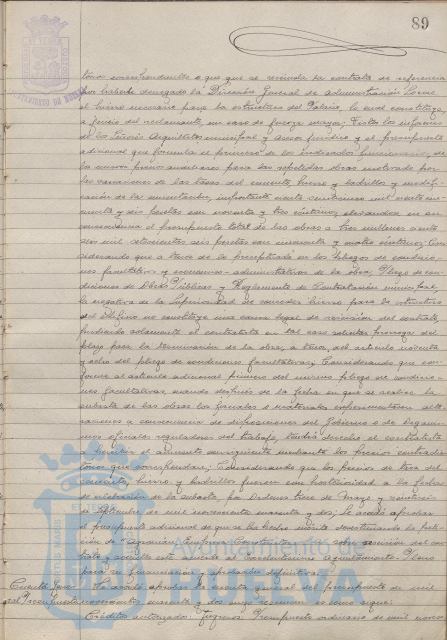 89
torio correspondiente o que que se rescinda la contrata de referencia
por haberle denegado la Dirección General de Administración Local
el hierro necesario para la estructura del Palacio, lo cual constituye
a juicio del reclamante un caso de fuerza mayor; Vistos los informes
de los Señores Arquitecto municipal y Asesor Jurídico y el presupuesto
adicional que formula el primero de los indicados funcionarios, de
los nuevos precios auxiliares para las repetidas obras motivado por
las variaciones de las tasas del cemento, hierro y ladrillos y modifi-
cación de la importante cuatrocientas mil ciento cin-
cuenta y seis pesetas con noventa y tres céntimos, elevándose en su
consecuencia el presupuesto total de las obras a tres millones ciento
seis mil setecientas seis pesetas con cuarenta y cuatro céntimos; Con-
siderando que a tenor de lo preceptuado en los pliegos de condicio-
nes facultativas y económico-administrativas de la obra, Pliego de con-
diciones de Obras Públicas y Reglamento de Contratación municipal,
la negativa de la Superioridad de conceder hierro para la estructura
del edificio no constituye una causa legal de rescisión del contrato,
pudiendo solamente el contratista en tal caso solicitar prórroga del
plazo para la terminación de la obra, a tenor del artículo noventa
y ocho del pliego de condiciones facultativas; Considerando que con-
forme al artículo adicional primero del mismo pliego de condicio-
nes facultativas, cuando después de la fecha en que se realice la
subasta de las obras los jornales o materiales experimentaren alte-
raciones a consecuencia de disposiciones del Gobierno o de Organis-
mos oficiales reguladores del trabajo, tendrá derecho el contratista
a percibir el aumento consiguiente mediante los precios contradic-
torios que correspondan; Considerando que los precios de tasa del
cemento, hierro y ladrillos fueron con posterioridad a la fecha
de celebración de la subasta, por Ordenes trece de Mayo y veintiseis
de Septiembre de mil novecientos cuarenta y dos; Se acordó aprobar
el presupuesto adicional de que se ha hecho mérito desestimando la peti-
ción de "Agromán Empresa Constructora S.A." sobre rescisión del con-
trato y someter este acuerdo al Excelentísimo Ayuntamiento Pleno
para su financiación y aprobación definitiva.
Cuenta Gene- Se acordó aprobar la cuenta general del presupuesto de mil
ral Presupuesto novecientos cuarenta y dos cuyo resumen es como sigue:
Créditos autorizados: Ingresos: Presupuesto ordinario de mil nove-
Ayuntamiento de
HUELVA